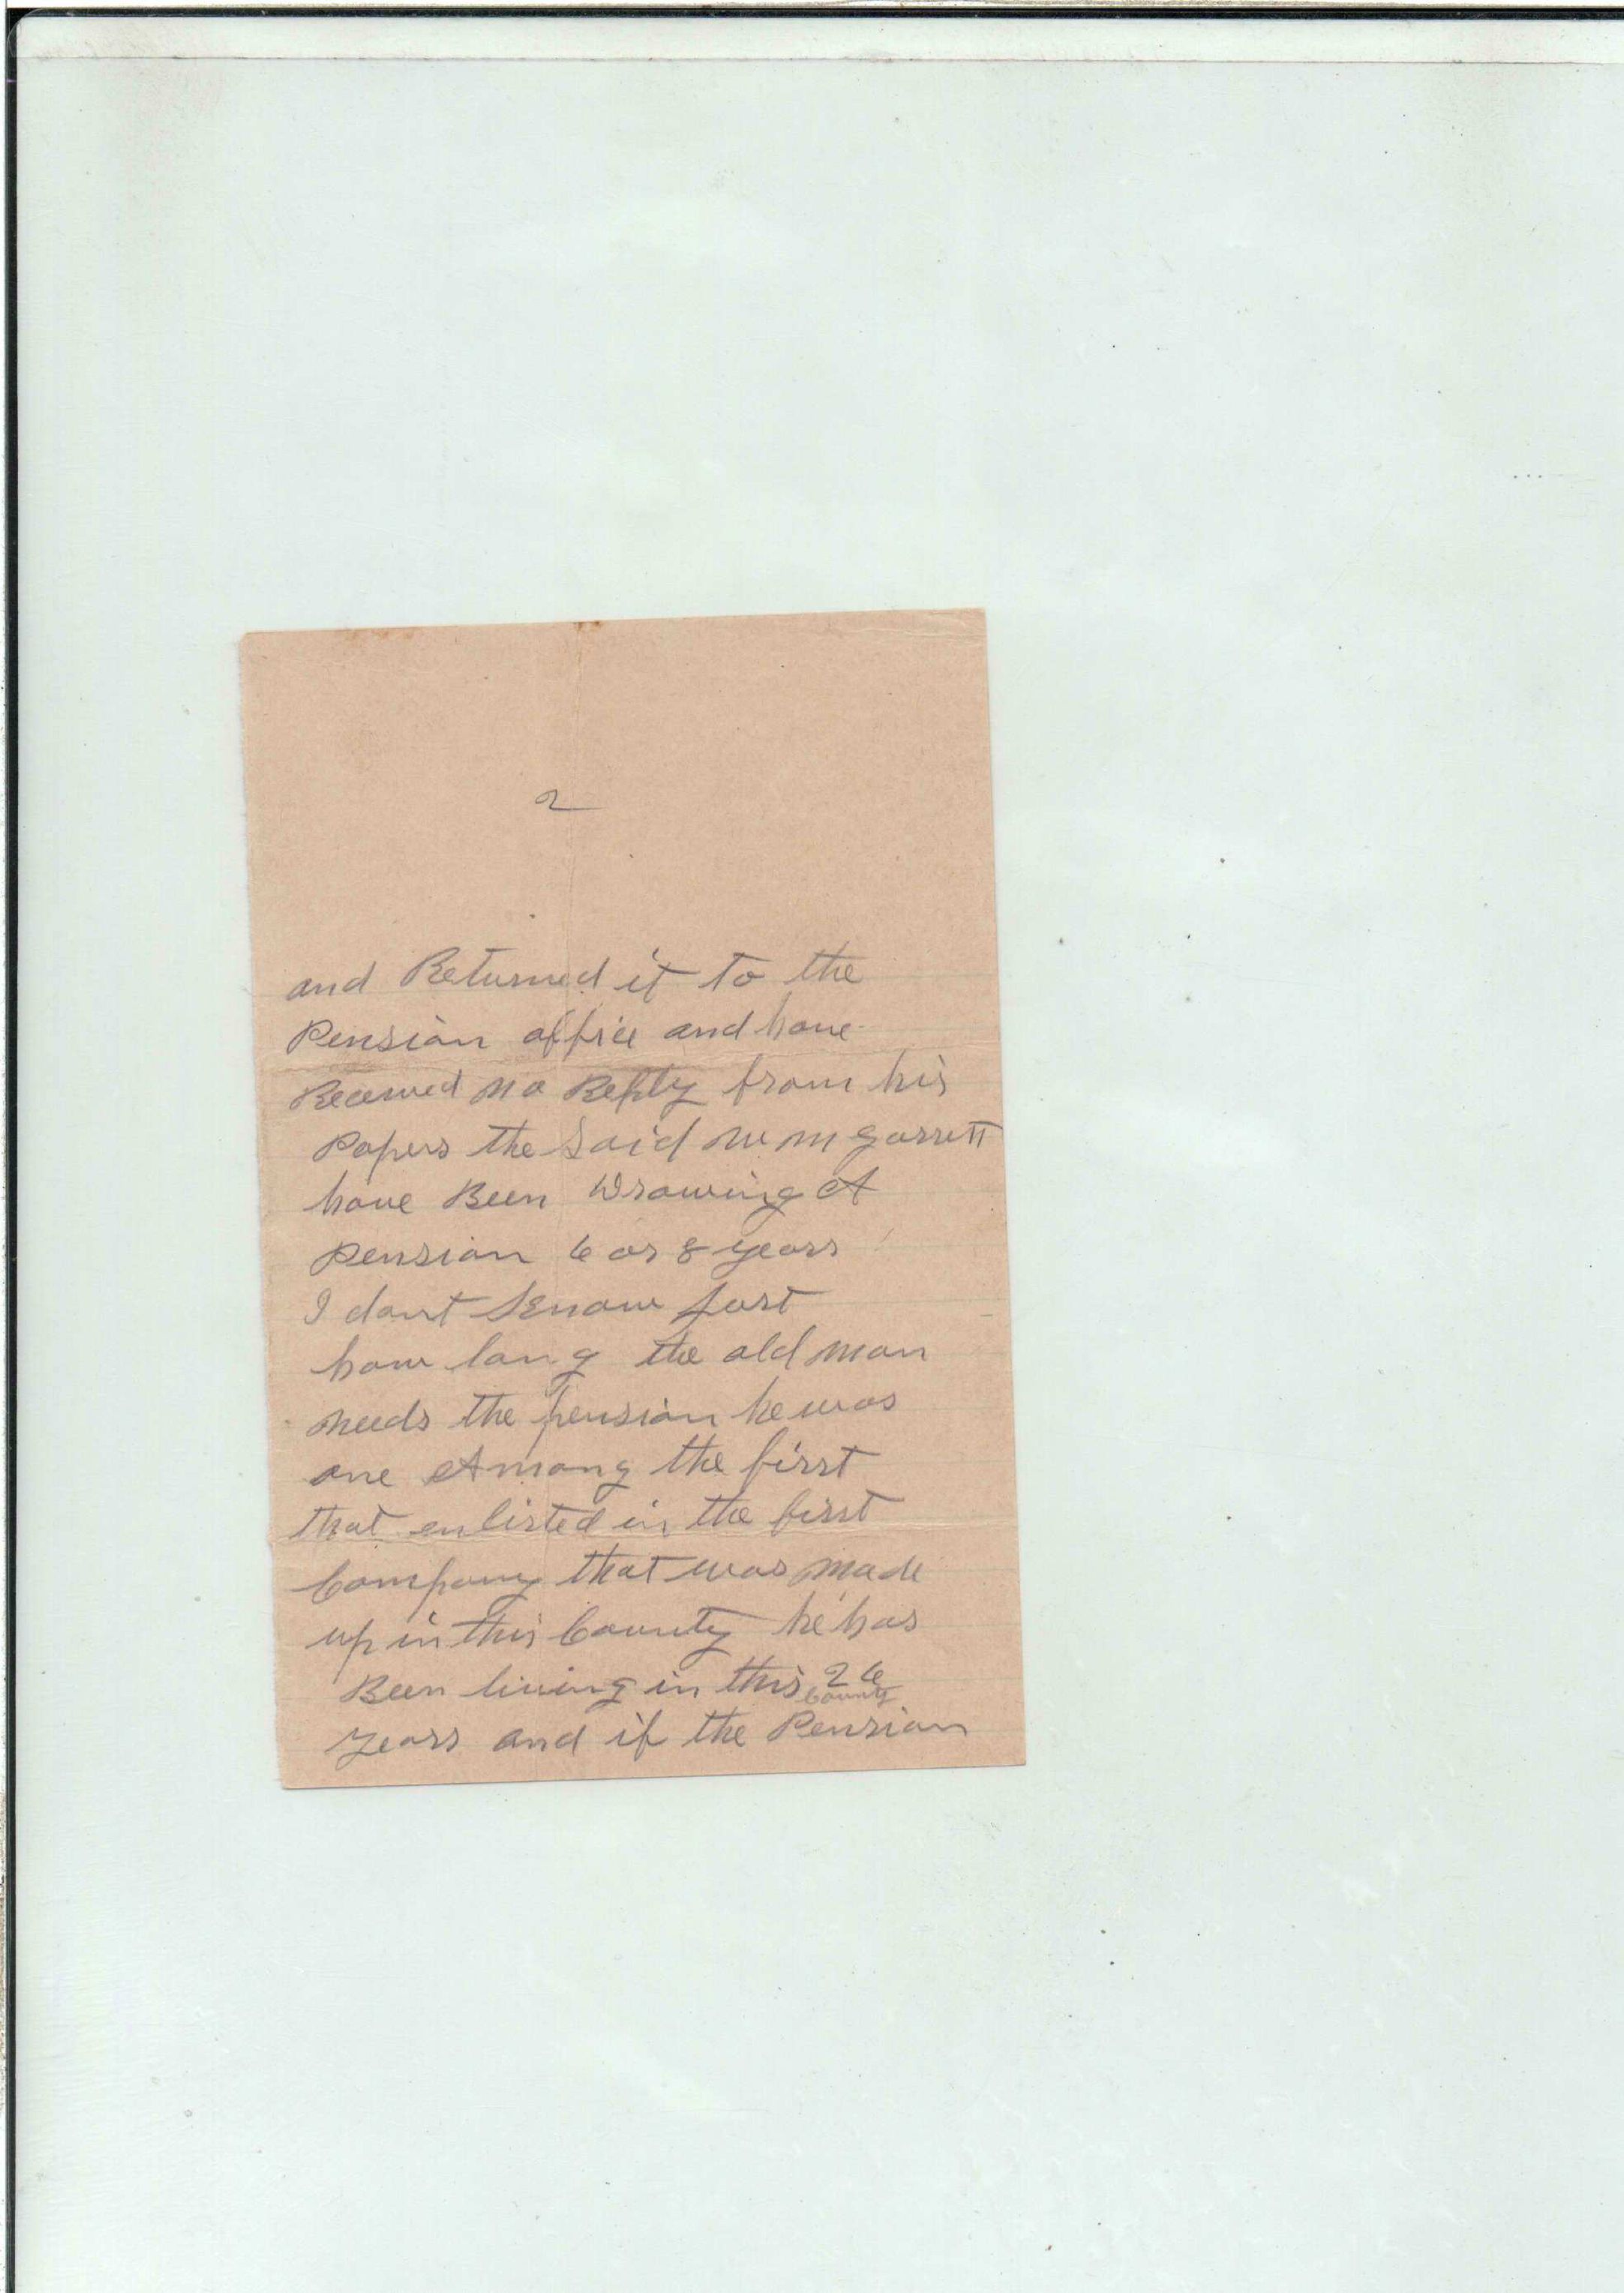 2
and Returned it to the
Pension office and have
Received no Reply from his
Papers the Said M M garrett
have Been Drawing A
Pension 6 or 8 years
I dont Know Just
how long the old man
needs the pension he was
one Among the first
that enlisted in the first
Company that was made
up in this County he has
Been living in this County 26
years and if the Pension